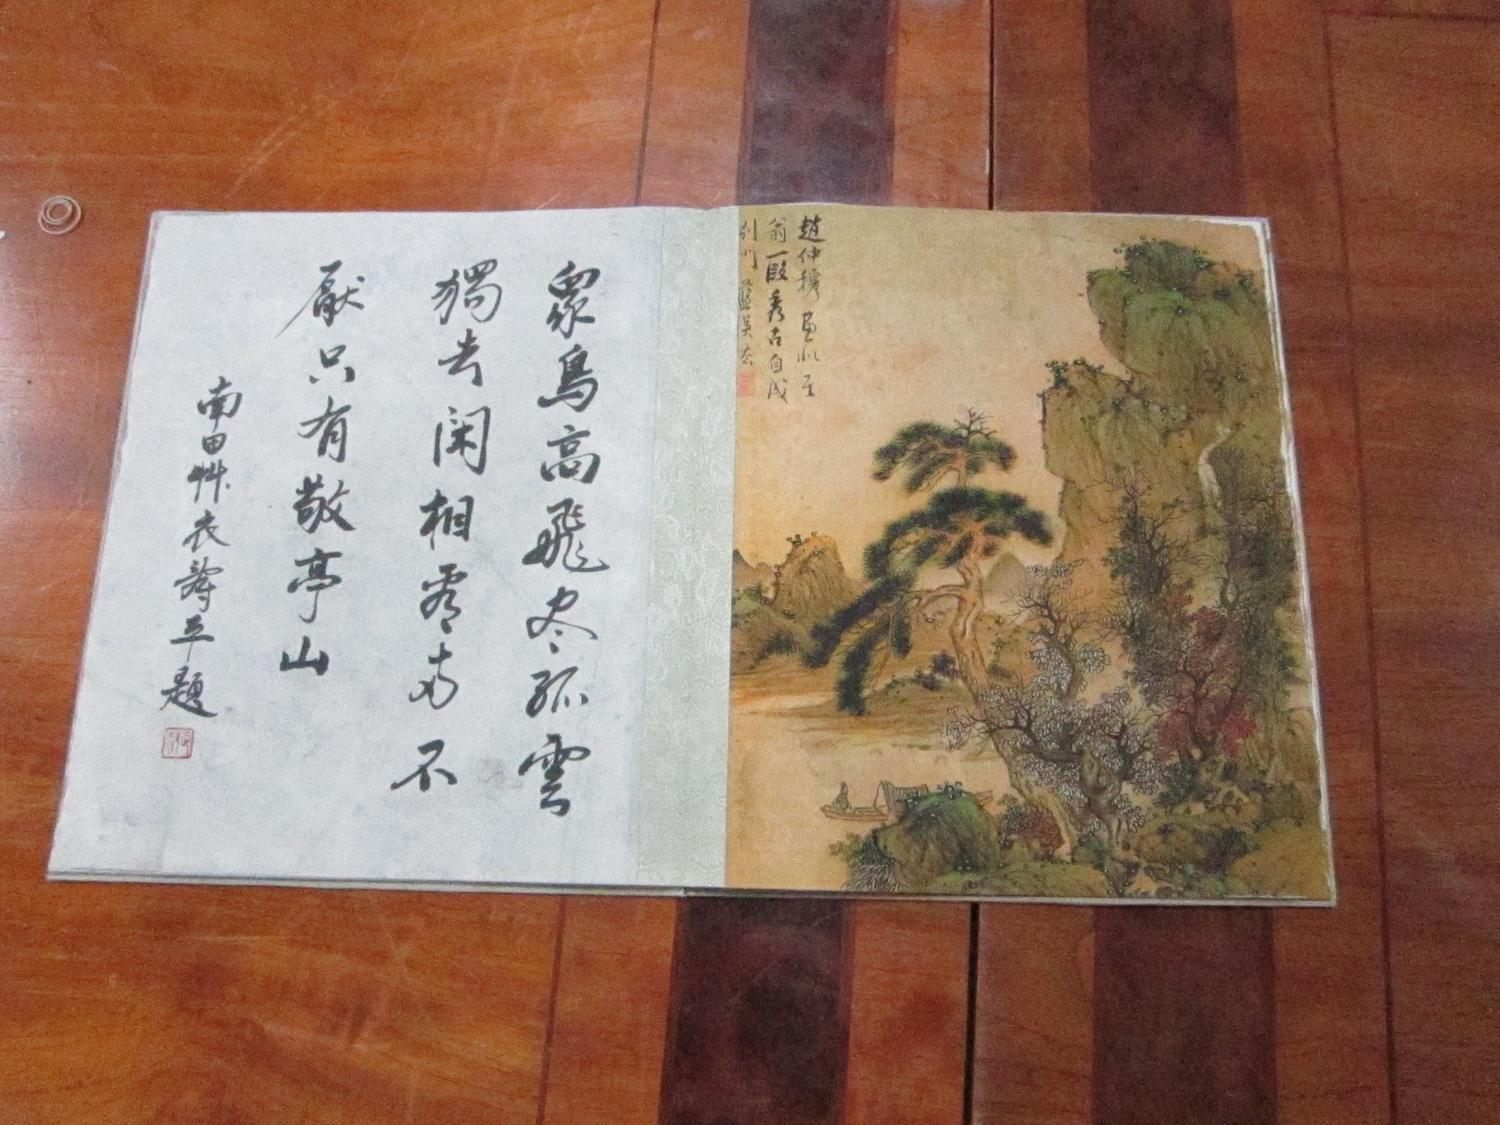 趙仲穆畫
翁一段秀古自成
别門 藍瑛
眾鳥高飛尽孤雲
獨去閑相看两不
厭只有敬亭山
南田艸衣壽平題